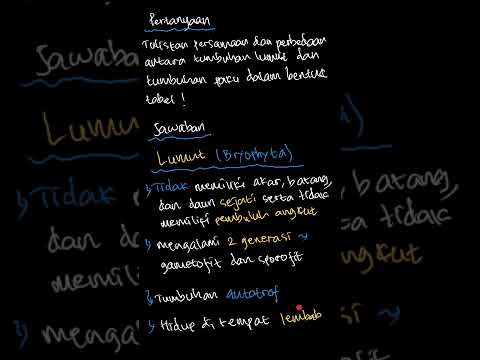 Pertanyaan
Tuliskan persamaan dan perbedaan
antara tumbuhan lumut dan
tumbuhan paku dalam bentuk
tabel !
Jawaban
Lumut (Bryophyta)
Tidak memiliki akar, batang,
dan daun sejati serta tidak
memiliki pembuluh angkut
mengalami 2 generasi ~
gametofit dan sporofit
Tumbuhan autotrof
Hidup di tempat lembab